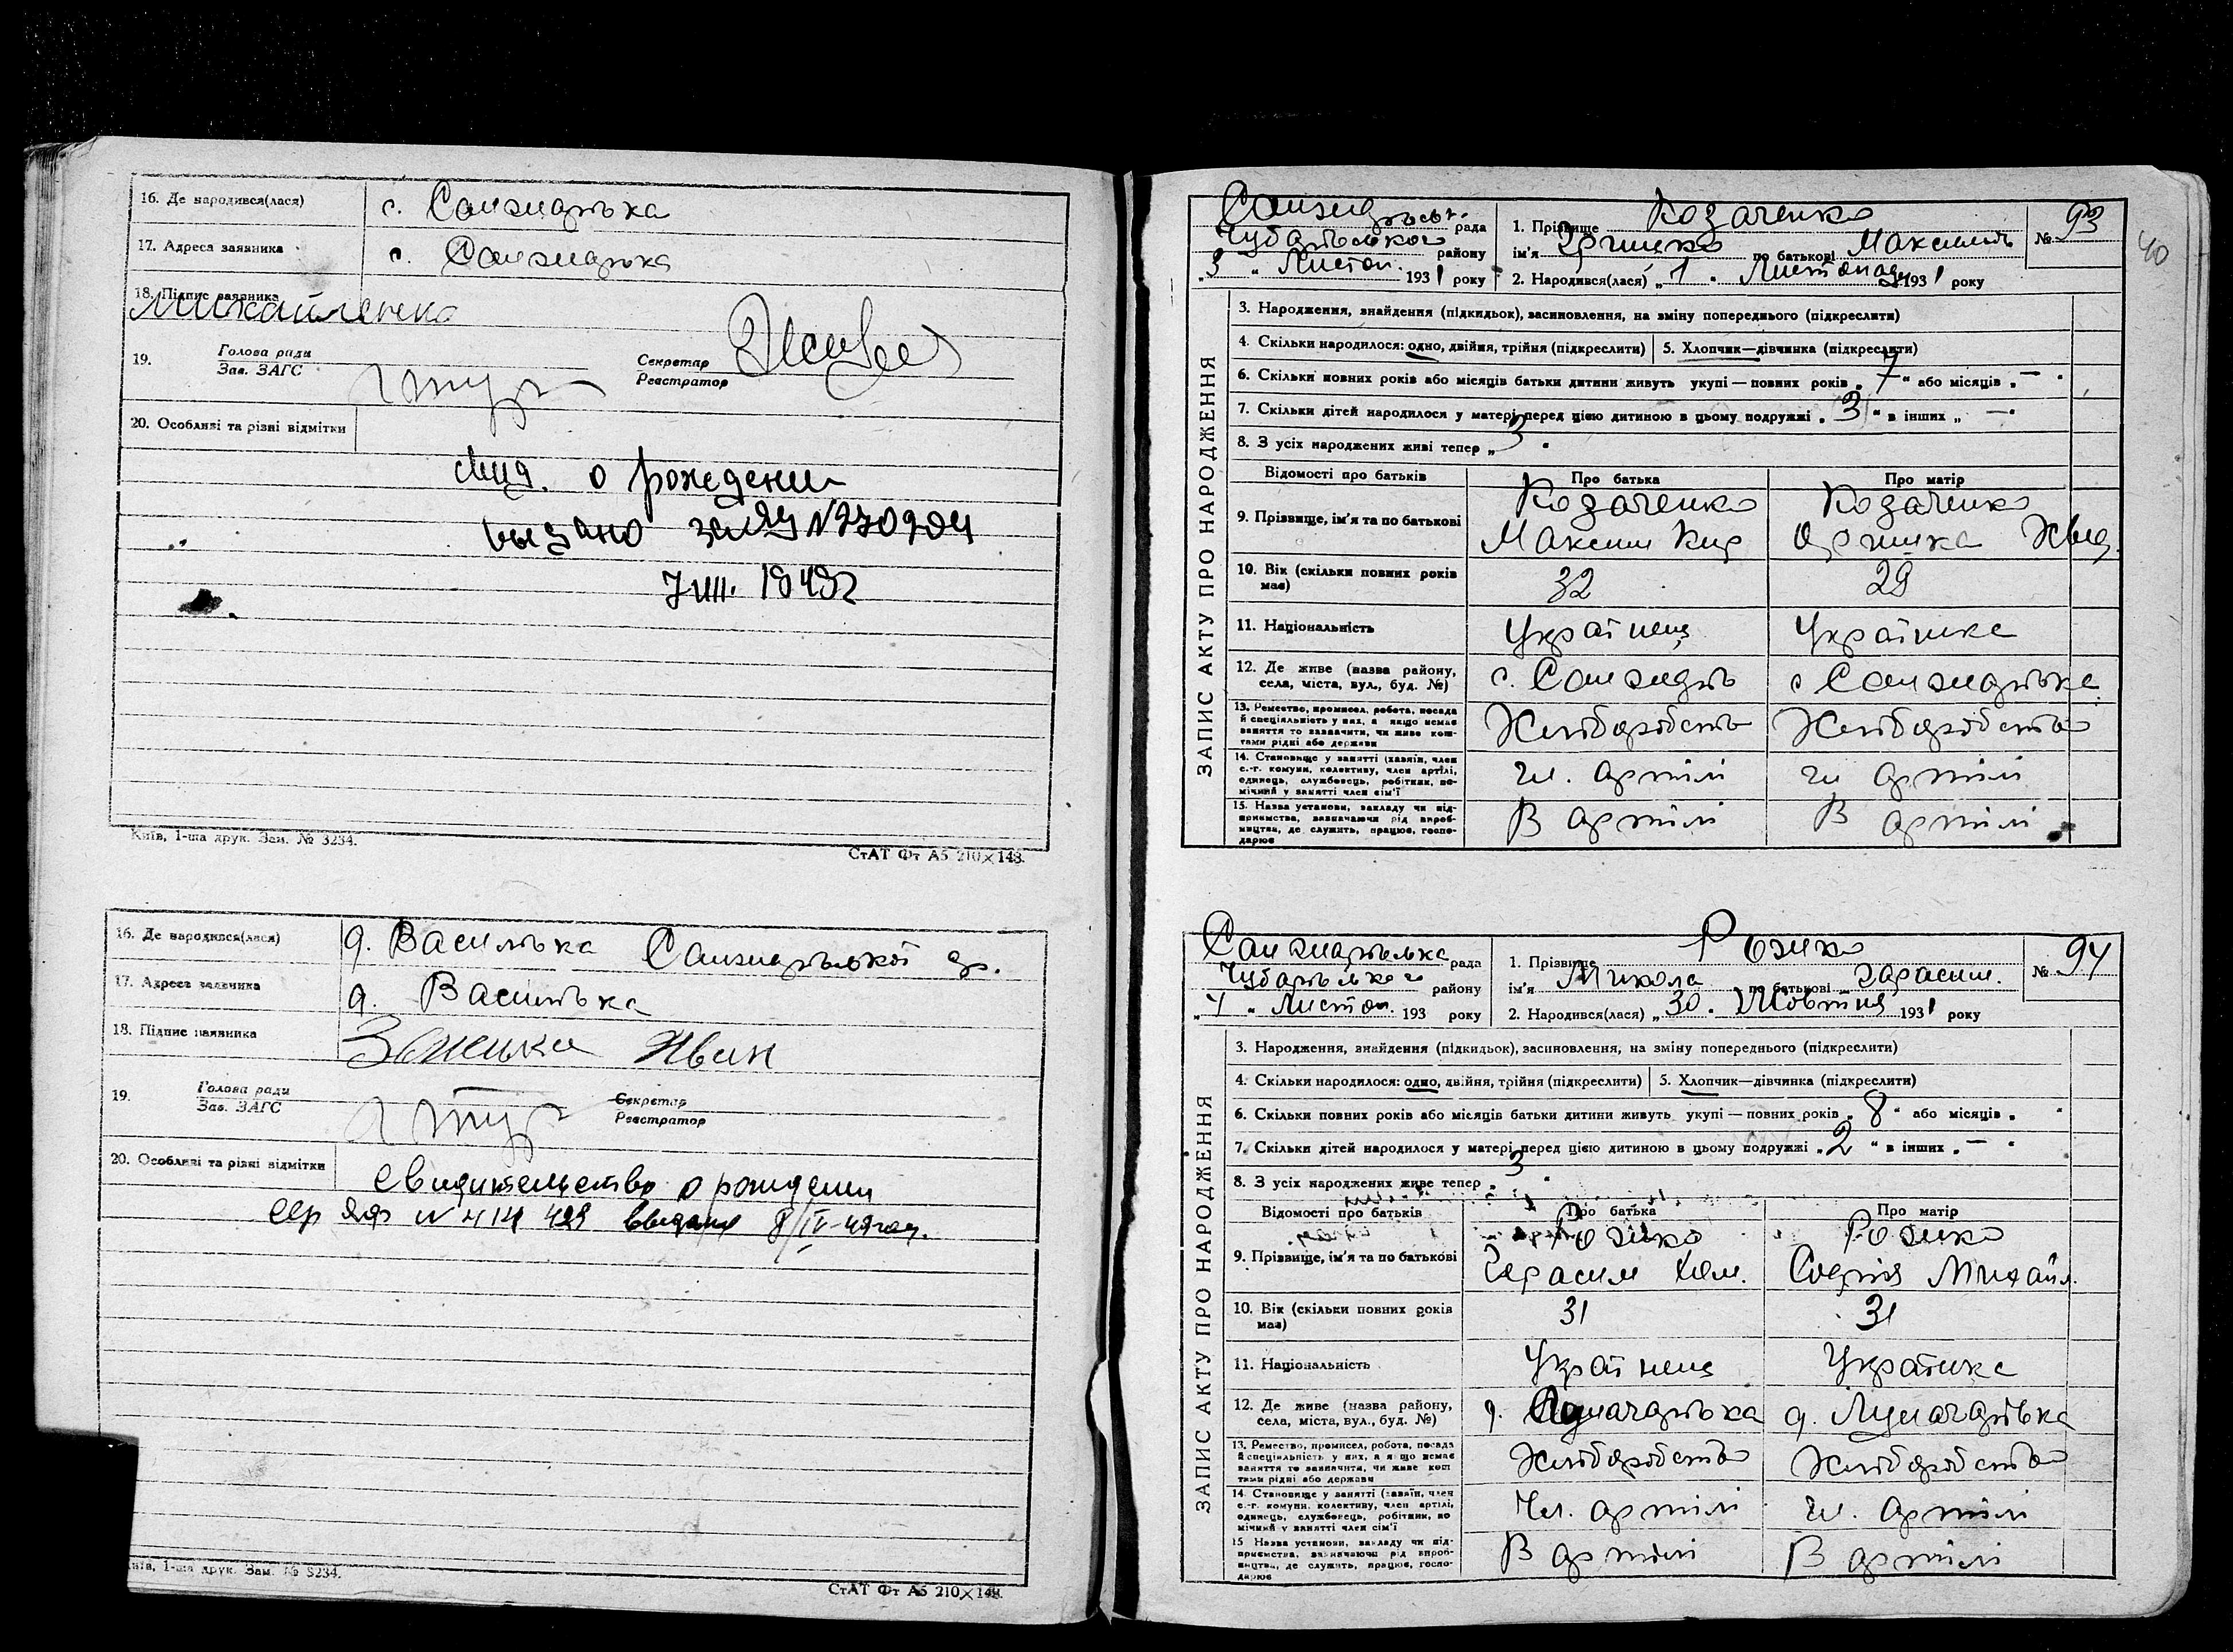 16. Де народився(лася) с. Санжарівка
17. Адреса заявника с. Санжарівка
18. Підпис заявника
Михайленко
19. Голова ради
Зав. ЗАГС
Секретар
Реєстратор
20. Особливі та різні відмітки
о рождении
выдано за ЯЦ №
1949г
Київ, 1-ша друк. Зам. № 3234.
СтАТ Фт А5 210×148.
16. Де народився(лася) д. Василівка Санжарівської
17. Адреса заявника д. Василівка
18. Підпис заявника Іван
19. Голова ради
Зав. ЗАГС
Секретар
Реєстратор
20. Особливі та різні відмітки Свидительство о рождении
сер № 414 499
Київ, 1-ша друк. Зам. № 3234.
СтАТ Фт А5 210×148.
40
ЗАПИС АКТУ ПРО НАРОДЖЕННЯ
рада
Чубарівського району
„3“ Листоп. 1931 року
1. Прізвище Козаченко
ім'я по батькові Максимів
№ 93
2. Народився(лася) „1“ Листопада 1931 року
3. Народження, знайдення (підкидьок), засиновлення, на зміну попереднього (підкреслити)
4. Скільки народилося: одно, двійня, трійня (підкреслити) 5. Хлопчик—дівчинка (підкреслити)
6. Скільки повних років або місяців батьки дитини живуть укупі — повних років „7“ або місяців „—“
7. Скільки дітей народилося у матері перед цією дитиною в цьому подружжі „3“ в інших „—“
8. З усіх народжених живі тепер „3“
Відомості про батьків Про батька Про матір
9. Прізвище, ім'я та по батькові Козаченко Козаченко
Максим Кир
10. Вік (скільки повних років має) 32 29
11. Національність Українець Українка
12. Де живе (назва району, села, міста, вул., буд. №) с. Санжарів с Санжарівка
13. Ремество, промисел, робота, посада й спеціяльність у них, а якщо немає заняття то зазначити, чи живе коштами рідні або держави Хліборобств Хліборобство
14. Становище у занятті (хазяїн, член с.-г. комуни, колективу, член артілі, одинець, службовець, робітник, помічний у занятті член сім'ї чл. артілі чл артілі
15. Назва установи, закладу чи підприємства, зазначаючи рід виробництва, де служить, працює, господарює В артілі В артілі
ЗАПИС АКТУ ПРО НАРОДЖЕННЯ
Санжарівська рада
Чубарівського району
„4“ Листоп. 193 року
1. Прізвище Рожко
ім'я Микола по батькові Гарасим.
№ 94
2. Народився(лася) „30“ Жовтня 1931 року
3. Народження, знайдення (підкидьок), засиновлення, на зміну попереднього (підкреслити)
4. Скільки народилося: одно, двійня, трійня (підкреслити) 5. Хлопчик—дівчинка (підкреслити)
6. Скільки повних років або місяців батьки дитини живуть укупі — повних років „8“ або місяців „ “
7. Скільки дітей народилося у матері перед цією дитиною в цьому подружжі „2“ в інших „—“
8. З усіх народжених живе тепер „3“
Відомості про батьків Про батька Про матір
9. Прізвище, ім'я та по батькові Рожко Рожко
Гарасим Софія Михайл.
10. Вік (скільки повних років має) 31 31
11. Національність Українець Українка
12. Де живе (назва району, села, міста, вул., буд. №) д. Луначарівка д. Луначарівка
13. Ремество, промисел, робота, посада й спеціяльність у них, а якщо немає заняття то зазначити, чи живе коштами рідні або держави Хліборобство Хліборобство
14. Становище у занятті (хазяїн, член с.-г. комуни, колективу, член артілі, одинець, службовець, робітник, помічний у занятті член сім'ї Чл. артілі чл. артілі
15 Назва установи, закладу чи підприємства, зазначаючи рід виробництва, де служить, працює, господарює В артілі В артілі